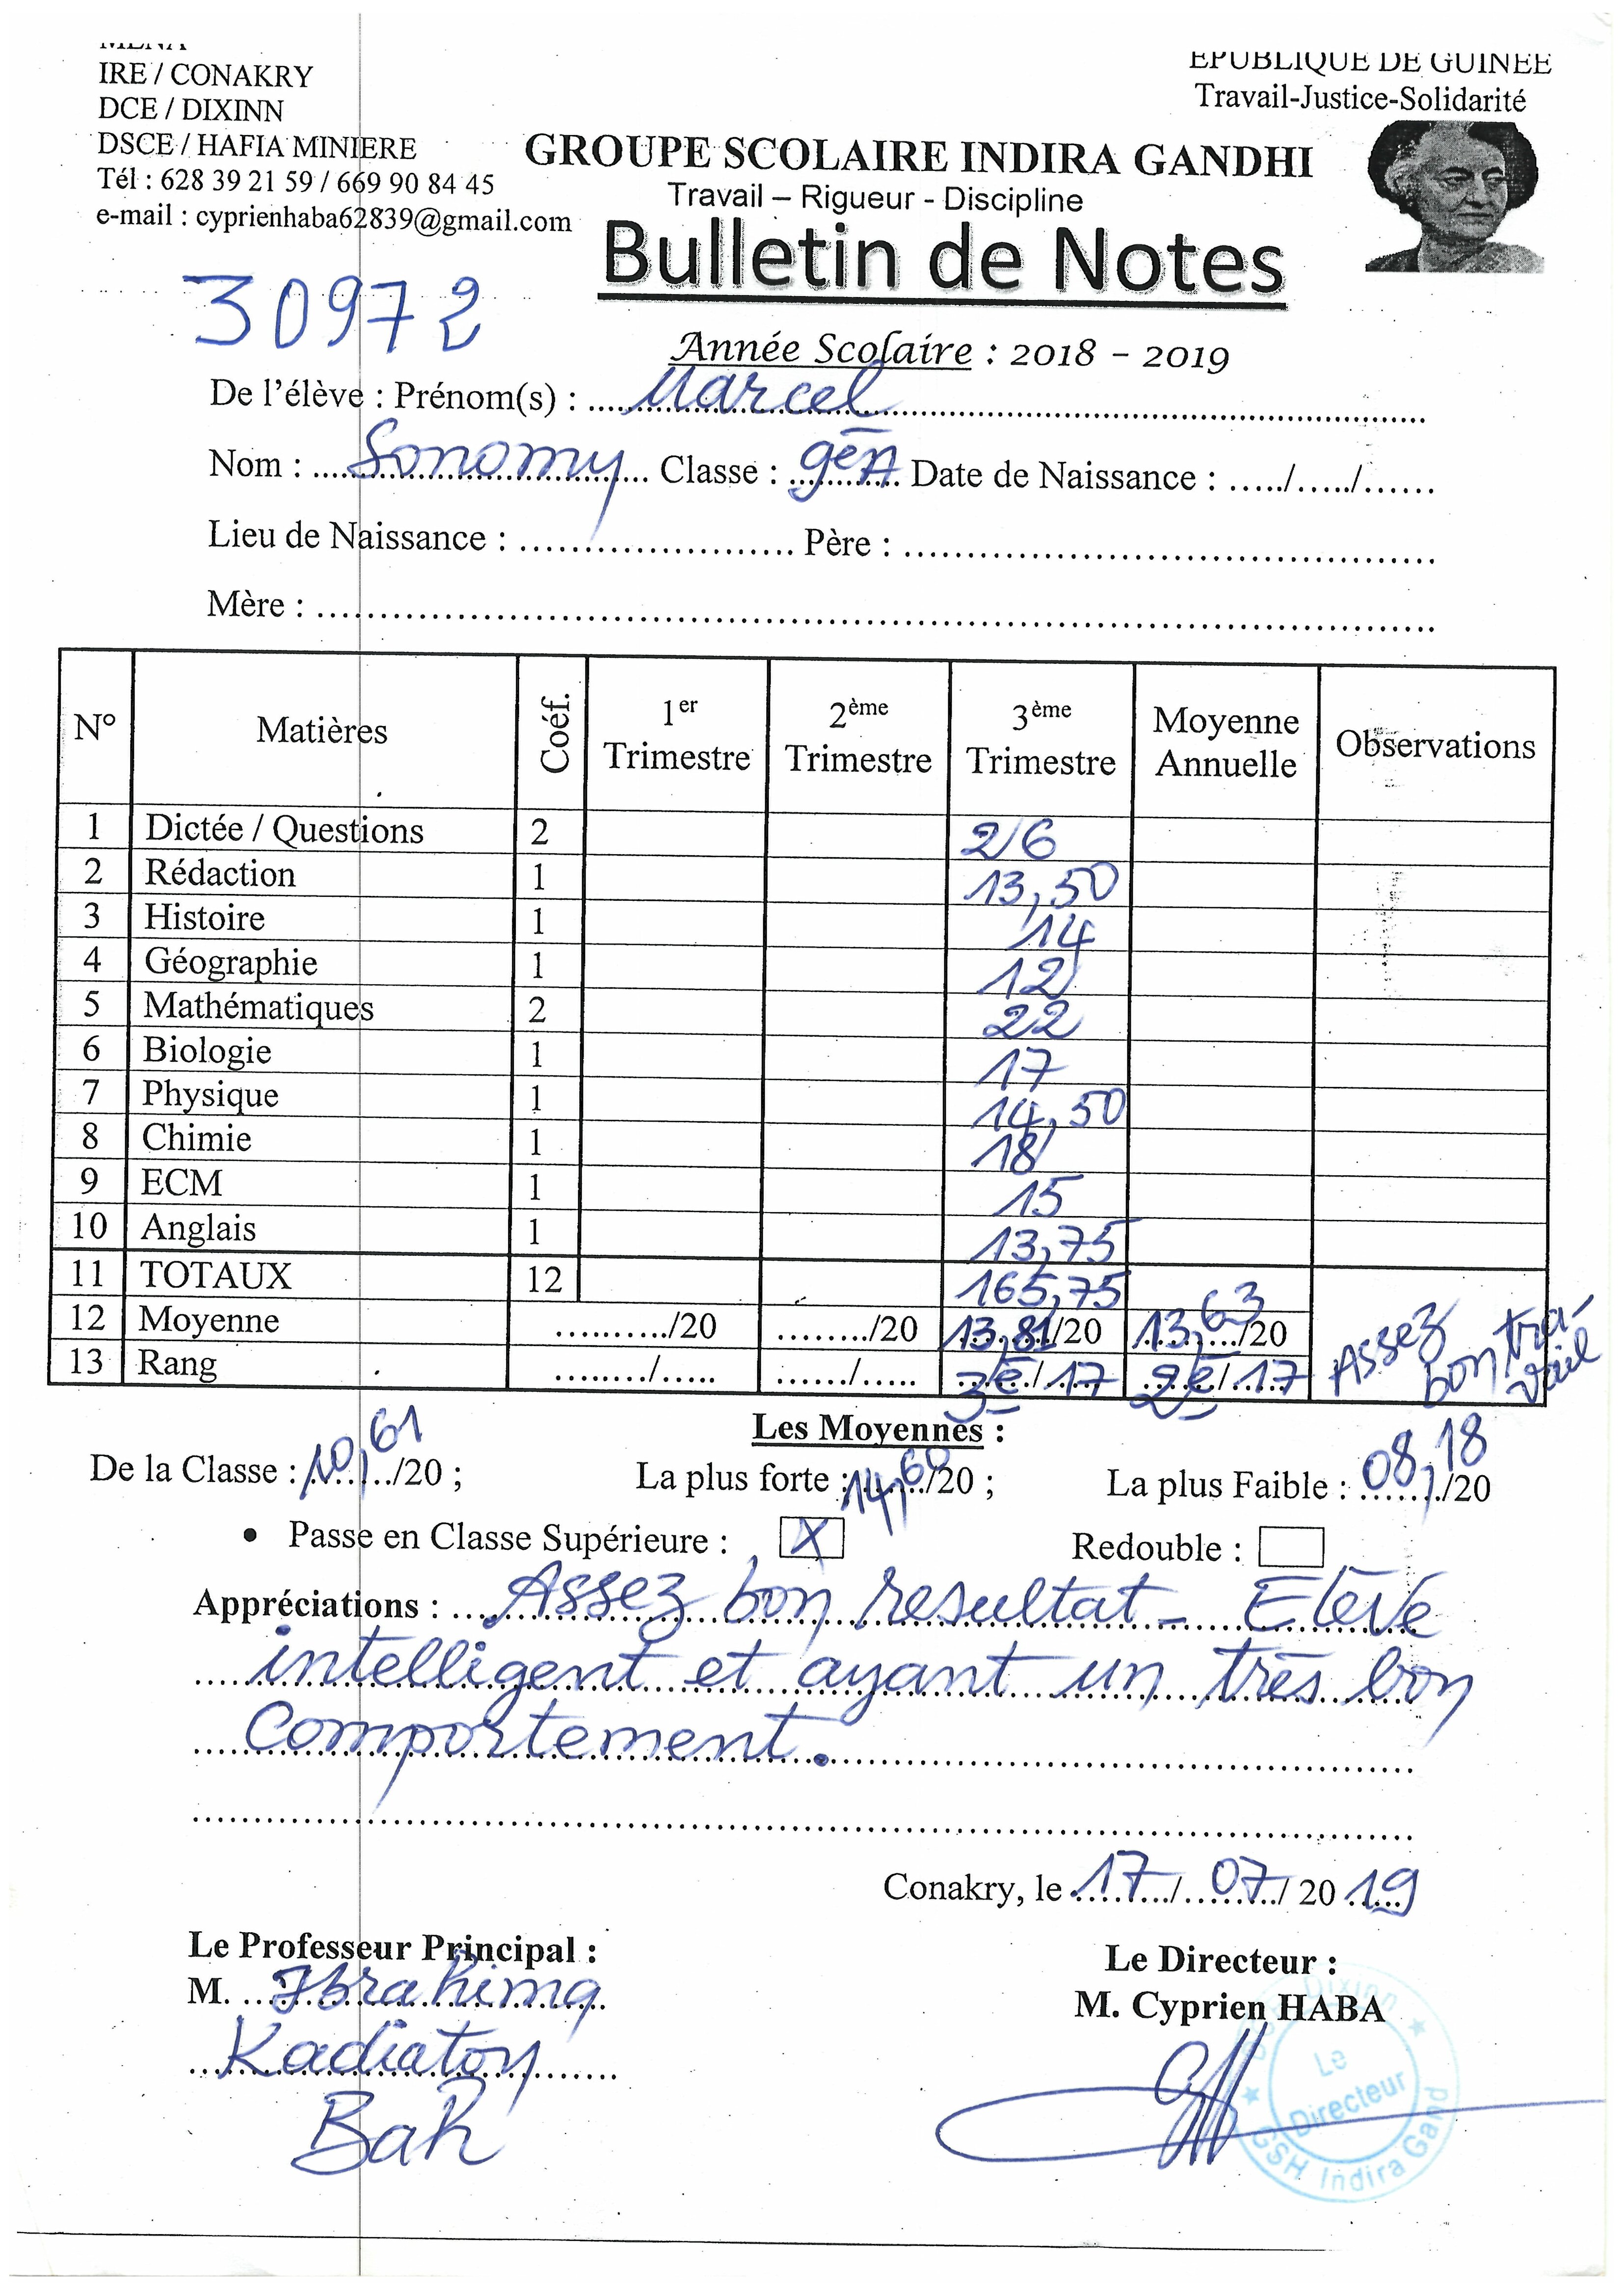 IRE / CONAKRY
DCE / DIXINN
DSCE / HAFIA MINIERE
Tél : 628 39 21 59 / 669 90 84 45
e-mail : cyprienhaba62839@gmail.com
EPUBLIQUE DE GUINEE
Travail-Justice-Solidarité
GROUPE SCOLAIRE INDIRA GANDHI
Travail – Rigueur - Discipline
Bulletin de Notes
30972
Année Scolaire : 2018 - 2019
De l'élève : Prénom(s) : Marcel
Nom : Sonomy Classe : Date de Naissance : ...../...../......
Lieu de Naissance : ........................ Père : ........................
Mère : ........................
N° Matières Coéf. 1er Trimestre 2ème Trimestre 3ème Trimestre Moyenne Annuelle Observations
1 Dictée / Questions 2 26
2 Rédaction 1 13,50
3 Histoire 1 14
4 Géographie 1 12
5 Mathématiques 2 22
6 Biologie 1 17
7 Physique 1 14,50
8 Chimie 1 18
9 ECM 1 15
10 Anglais 1 13,75
11 TOTAUX 12 165,75
12 Moyenne ........../20 ......../20 13,81/20 13,63/20 Assez bon tra-
13 Rang ......../..... ....../..... 3e/17 2e/17 vail
Les Moyennes :
De la Classe : 10,61/20 ; La plus forte : 14,60/20 ; La plus Faible : 08,18/20
• Passe en Classe Supérieure : X Redouble :
Appréciations : Assez bon resultat - Elève
intelligent et ayant un très bon
comportement.
Conakry, le 17/07/2019
Le Professeur Principal : Le Directeur :
M. Ibrahima M. Cyprien HABA
Kadiatou
Bah
Dixinn
Le
Directeur
GSH Indira Gand